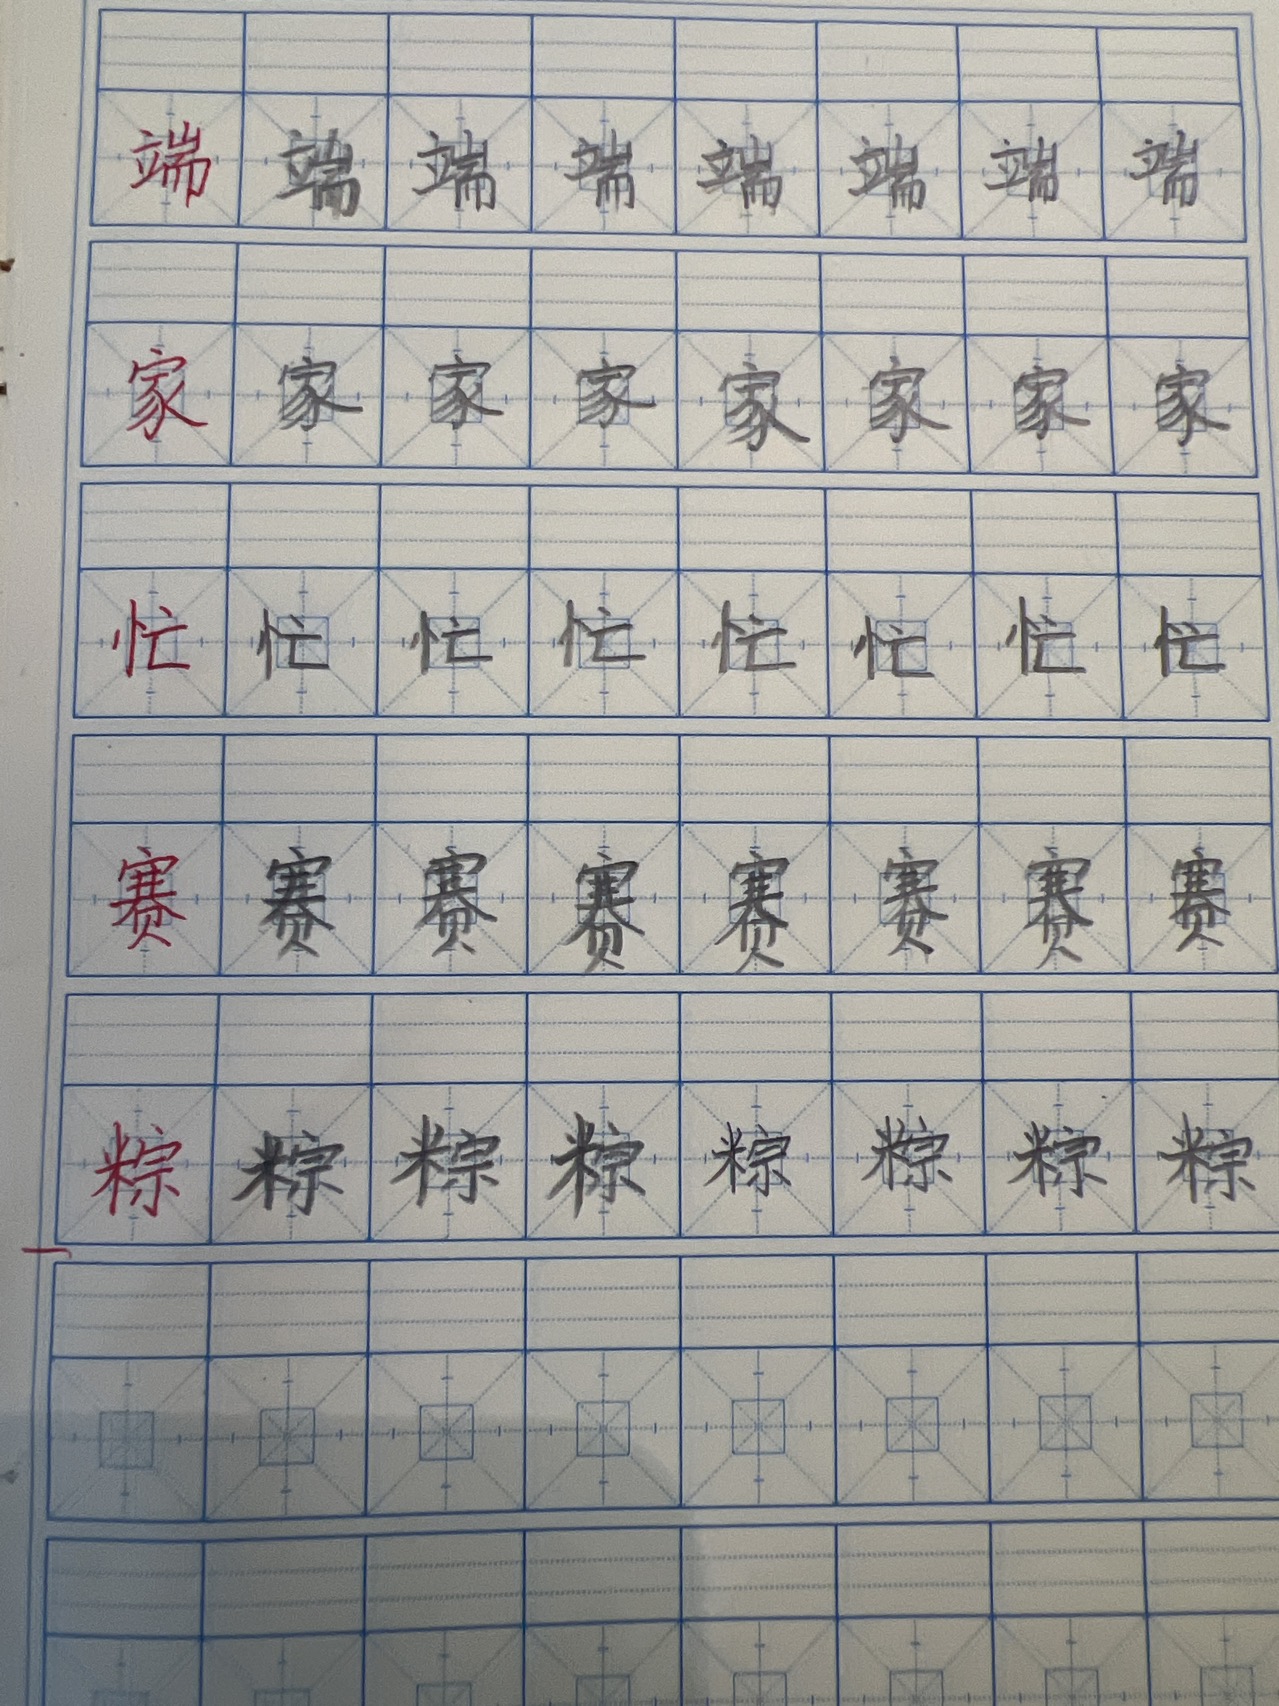 端端端端端端端端
家家家家家家家家
忙忙忙忙忙忙忙忙
赛赛赛赛赛赛赛赛
粽粽粽粽粽粽粽粽